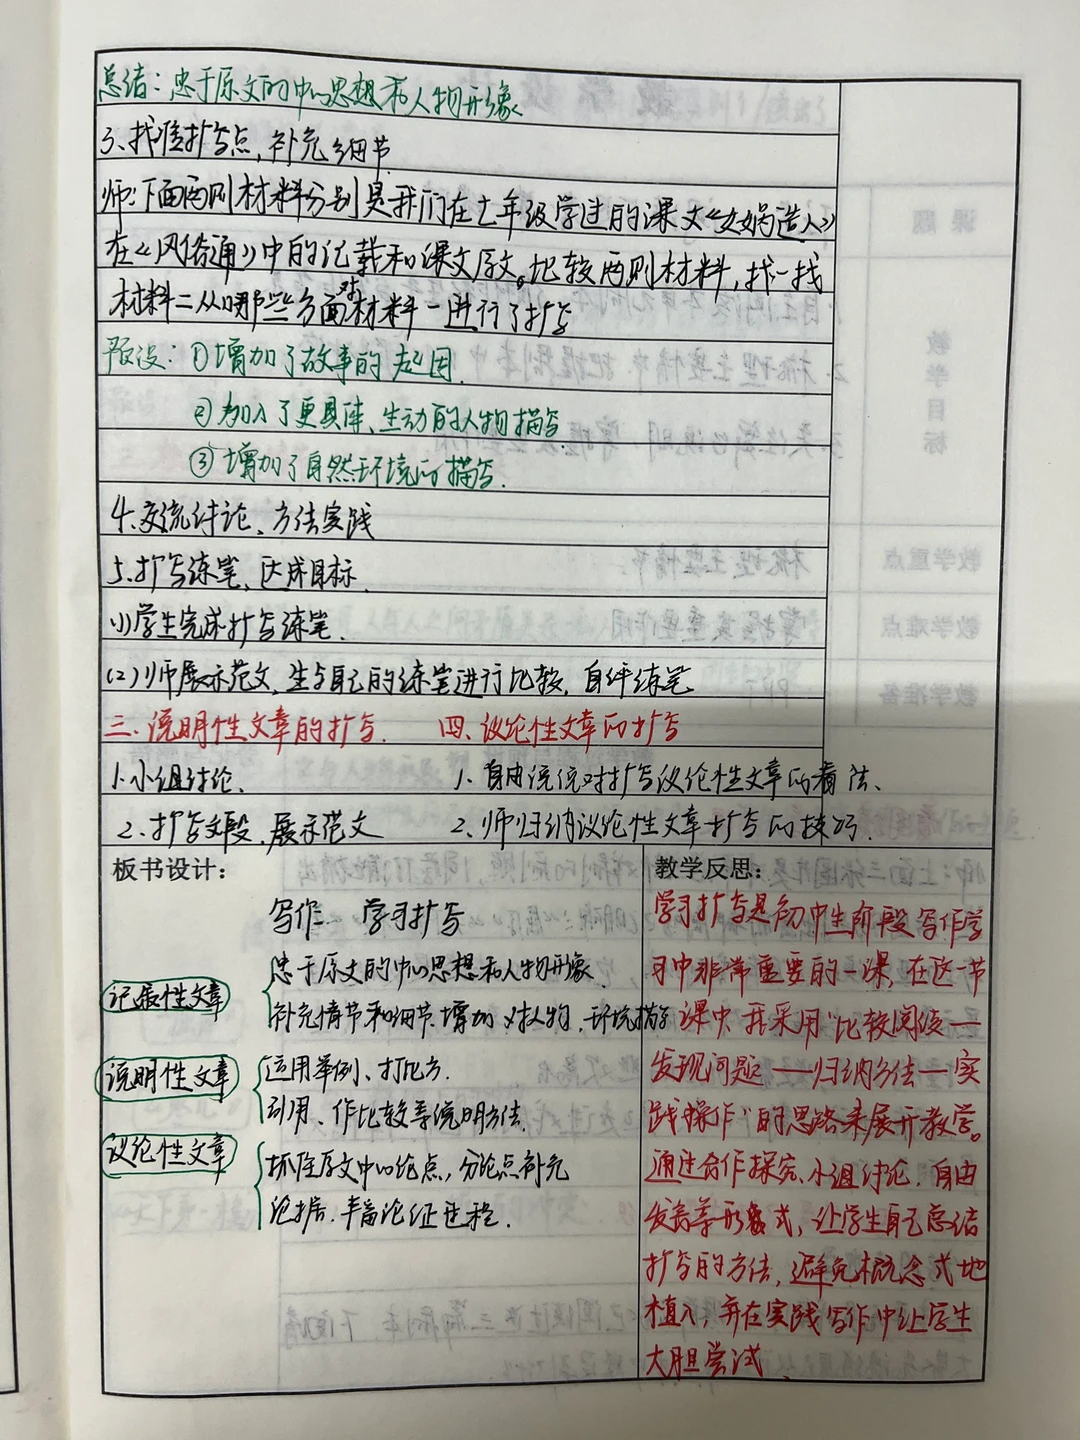 总结：忠于原文的中心思想和人物形象
3、找准扩写点，补充细节
师：下面两则材料分别是我们在七年级学过的课文《女娲造人》
在《风俗通》中的记载和课文原文。比较两则材料，找一找
材料二从哪些方面对材料一进行了扩写
预设：①增加了故事的起因
②加入了更具体、生动的人物描写
③增加了自然环境的描写.
4、交流讨论、方法实践
5、扩写练笔、达成目标
(1)学生完成扩写练笔.
(2)师展示范文，生与自己的练笔进行比较，自评练笔
三、说明性文章的扩写. 四、议论性文章的扩写
1、小组讨论. 1、自由谈谈对扩写议论性文章的看法、
2、扩写文段，展示范文 2、师归纳议论性文章扩写的技巧.
板书设计：
写作二 学习扩写
记叙性文章
忠于原文的中心思想和人物形象.
补充情节和细节.增加对人物、环境描写
说明性文章
运用举例、打比方.
引用、作比较等说明方法.
议论性文章
抓住原文中心论点，分论点补充
论据.丰富论证过程.
教学反思：
学习扩写是初中生阶段写作学
习中非常重要的一课，在这一节
课中，我采用“比较阅读——
发现问题——归纳方法——实
践操作”的思路来展开教学。
通过合作探究、小组讨论、自由
发言等形式，让学生自己总结
扩写的方法，避免概念式地
植入，并在实践写作中让学生
大胆尝试.